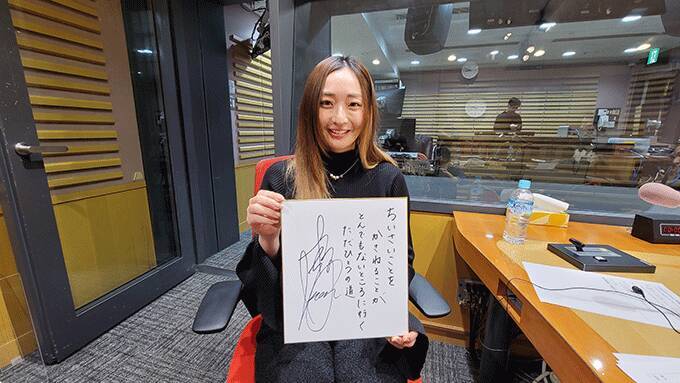 ちいさいことを
かさねることが、
とんでもないところに行く
ただひとつの道